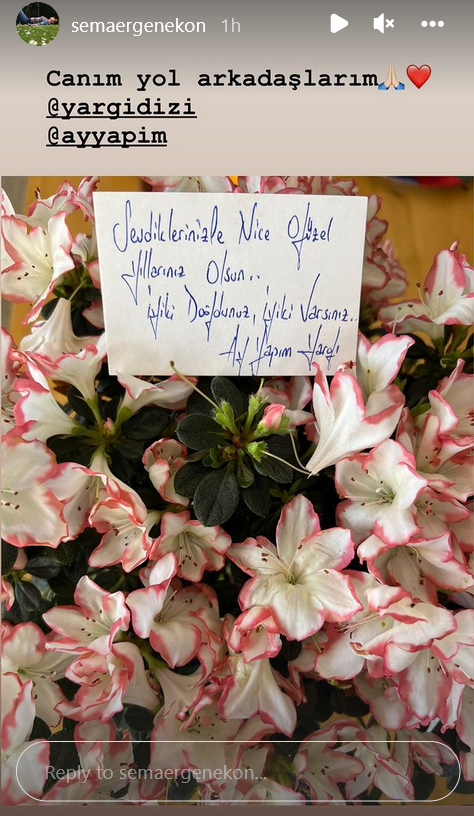 semaergenekon 1h
Canım yol arkadaşlarım🙏🏻❤️
@yargidizi
@ayyapim
Sevdiklerinizle Nice Güzel
Yıllarınız Olsun..
İyiki Doğdunuz, İyiki Varsınız..
Ay Yapım Yargı
Reply to semaergenekon...